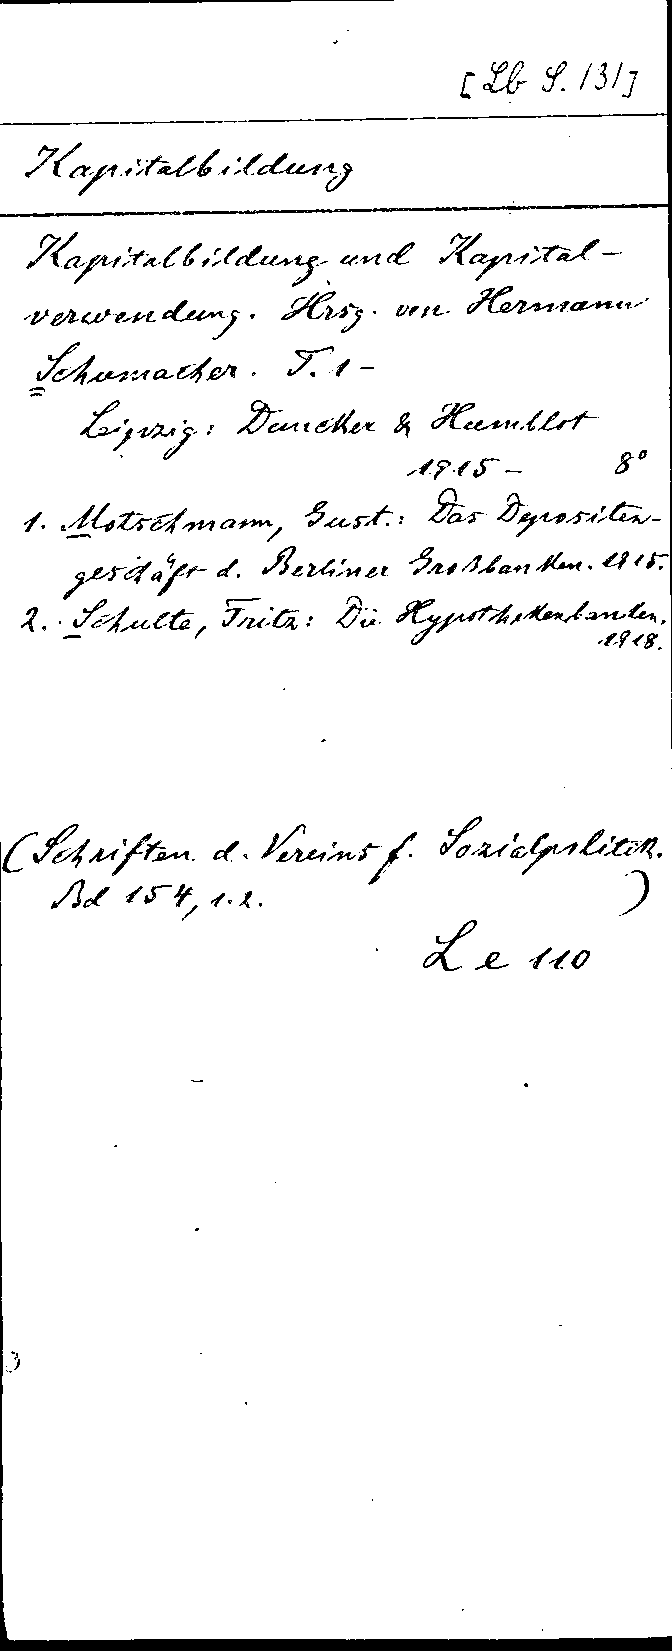 [Lb S. 131]
Kapitalbildung
Kapitalbildung und Kapital-
verwendung. Hrsg. von Hermann
Schumacher. T. 1 -
Leipzig: Duncker & Humblot
1915 - 8°
1. Motschmann, Gust.: Das Depositen-
geschäft d. Berliner Großbanken. 1915.
2. Schulte, Fritz: Die Hypothekenbanken.
1918.
(Schriften d. Vereins f. Sozialpolitik.
Bd 154, 1.2. )
L e 110